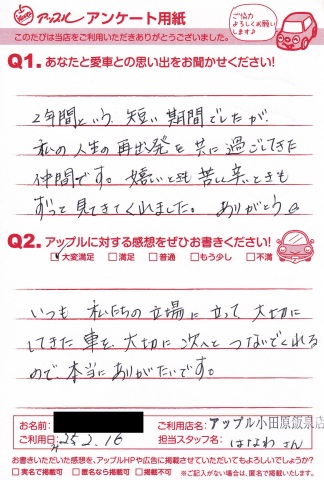 アップル アンケート用紙
ご協力
よろしくお願い
します♪
このたびは当店をご利用いただきありがとうございました。
Q1. あなたと愛車との思い出をお聞かせください!
2年間という 短い期間でしたが、
私の人生の再出発を共に過ごしてきた
仲間です。嬉しいときも苦し辛いときも
ずっと見てきてくれました。ありがとう
Q2. アップルに対する感想をぜひお書きください!
□大変満足 □満足 □普通 □もう少し □不満
いつも 私たちの立場に立って、大切に
してきた車を、大切に次へとつないでくれる
ので、本当にありがたいです。
お名前:
ご利用店名:アップル小田原飯泉店
ご利用日: 25.2.16
担当スタッフ名: はなわさん
お書きいただいた感想を、アップルHPや広告に掲載させていただいてもよろしいでしょうか?
□実名で掲載可 □匿名なら掲載可 □掲載不可 ※ご記入がない場合は、匿名で掲載いたします。